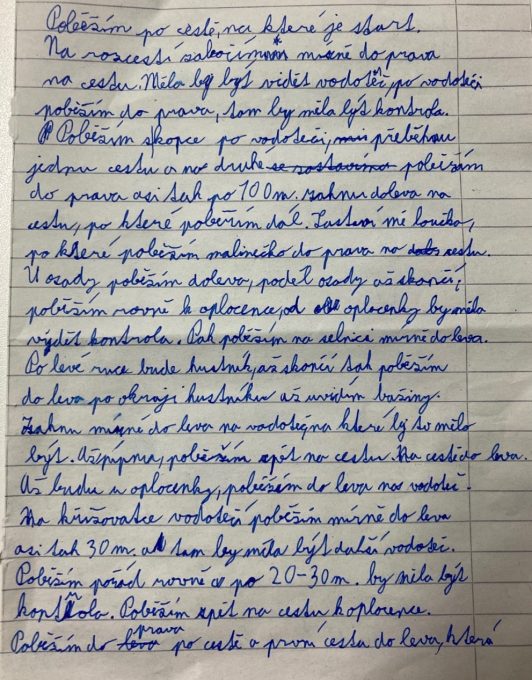 Poběžím po cestě, na které je start.
Na rozcestí zabočím mírně do prava
na cestu. Měla by být vidět vodoteč, po vodoteči
poběžím do prava, tam by měla být kontrola.
Poběžím skopce po vodoteči, přeběhnu
jednu cestu a na druhé se zastavíme poběžím
do prava asi tak po 100m. zahnu doleva na
cestu, po které poběžím dál. Zastaví mě loučka,
po které poběžím malinečko do prava na cestu.
U osady poběžím doleva, podél osady až skončí,
poběžím rovně k oplocence, od oplocenky by měla
výdět kontrola. Pak poběžím na selnici mírně do leva.
Po levé ruce bude hustník, až skončí tak poběžím
do leva po okraji hustníku až uvidím bažiny.
Zahnu mírně do leva na vodoteč, na které by to mělo
být. Až, poběžím spět na cestu. Na cestě do leva.
Až budu u oplocenky, poběžím do leva na vodoteč.
Na křižovatce vodotečí poběžím mírně do leva
asi tak 30m. a tam by měla být další vodoteč.
Poběžím pořád rovně a po 20-30m. by měla být
kontrola. Poběžím spět na cestu k oplocence.
Poběžím do leva prava po cestě a první cesta do leva, která